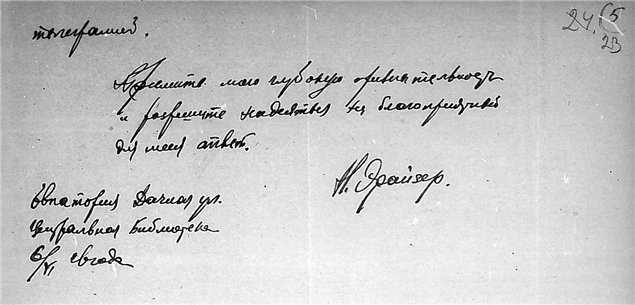 телеграммой.
24. 65
23
Примите мою глубокую признательность
и разрешите надеяться на благоприятный
для меня ответ.
М.
Евпатория Дачная ул.
Центральная Библиотека
6/VI